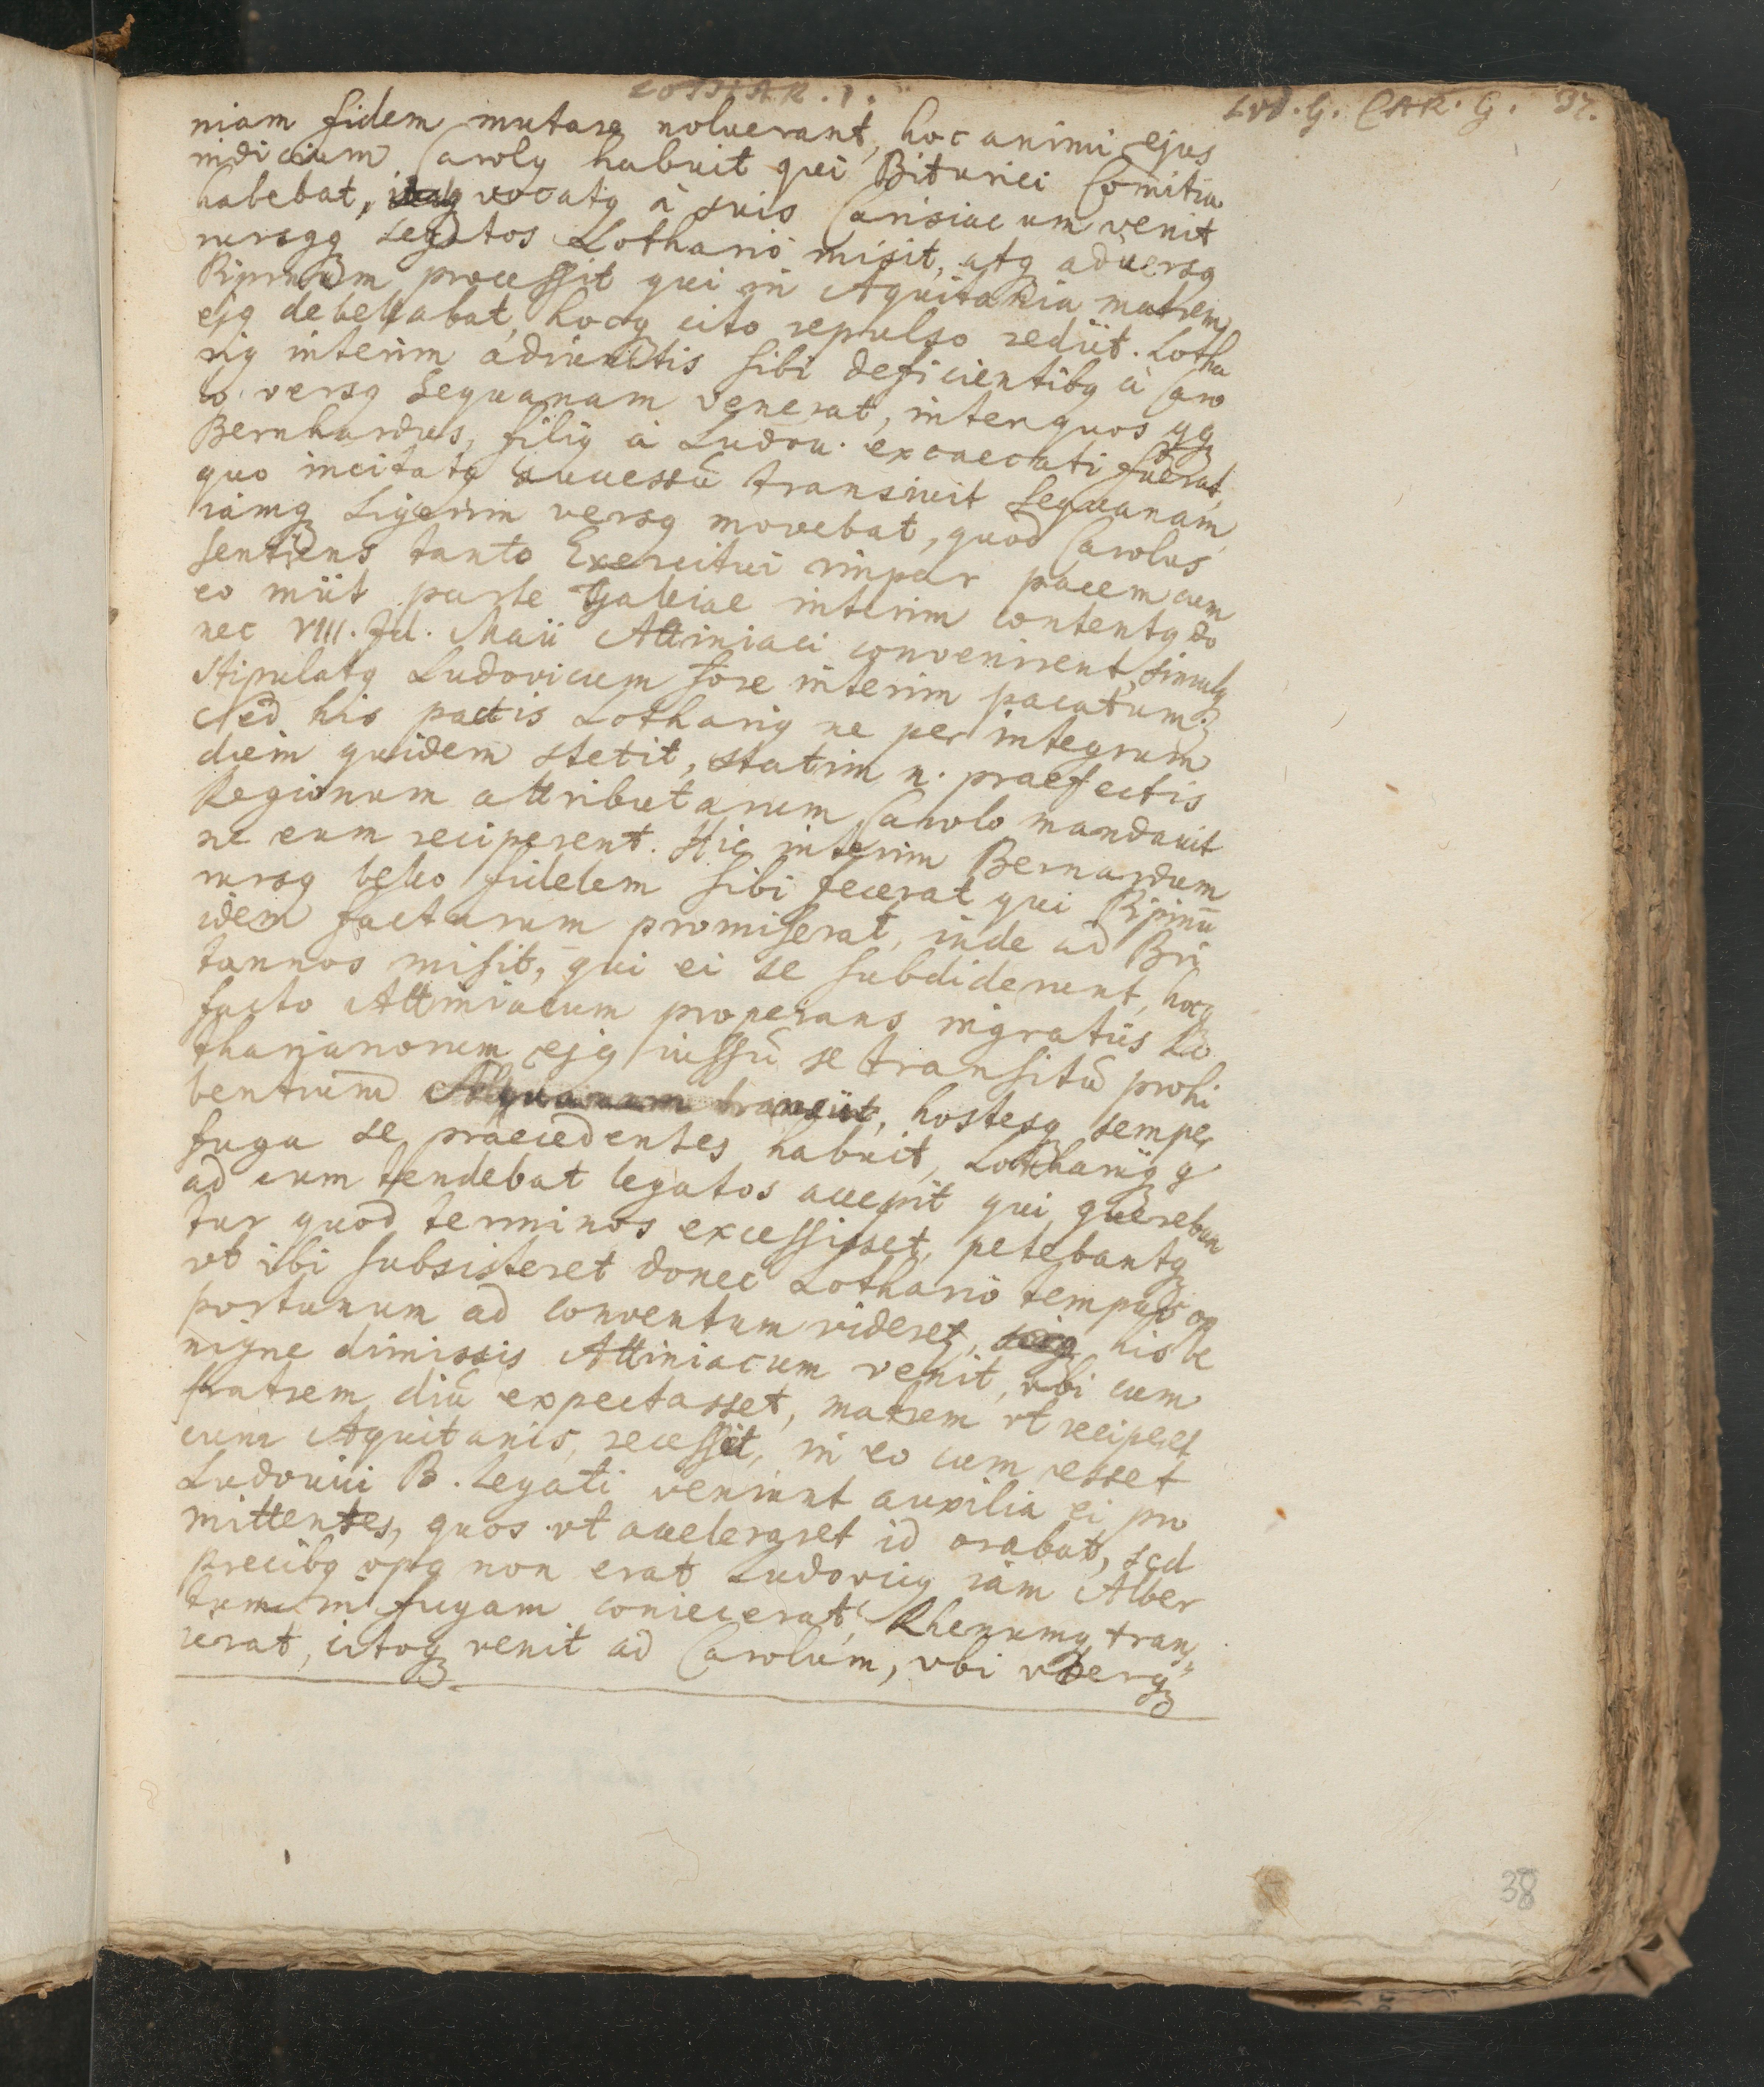 LOTHAR. I.
LVD. G. CAR. G. 37.
niam fidem mutare noluerant, hoc animi ejus
indicium Carolq habuit qui Biturici Comitia
habebat, vocatq à suis Carisiacum venit
rursqq Legatos Lothario misit, atq adversq
Pipinum processit qui in Aquitania matrem
ejq debellabat, hocq cito repulso rediit. Lotha
riq interim adiunctis sibi deficientibq à Caro
lo versq Sequanam venerat, inter quos qq
Bernhardus, filiq à Ludou. excaecati fuerat,
quo incitatq successu transivit Sequanam
iamq Ligerim versq movebat, quod Carolus
sentiens tanto Exercitui impar pacem cum
eo iniit parte Galliae interim contentq do
nec VIII. Id. Maii Attiniaci convenirent, simulq
stipulatq Ludovicum fore interim pacatum.
Sed his pactis Lothariq ne per integrum
diem quidem stetit, statim n. praefectis
Regionum attributarum Carolo mandavit
ne eum reciperent. Hic interim Bernardum
rursq bello fidelem sibi fecerat qui Pipinū
idem facturum promiserat, inde ad Bri
tannos misit, qui ei se subdiderunt, hocq
facto Attiniacum properans ingratiis Lo
tharianorum ejq iussū se transitū prohi
bentium transiit, hostesq semper
fuga se praecedentes habuit, Lothariq q
ad eum tendebat legatos accepit qui quereban
tur quod terminos excessisset, petebantq
vt ibi subsisteret donec Lothario tempus op
portunum ad conventum videret, his be
nigne dimissis Attiniacum venit, vbi cum
fratrem diū expectasset, matrem vt reciperet
cum Aquitanis, recessit, in eo cum esset
Ludovici B. legati veniunt auxilia ei pro
mittentes, quos vt acceleraret id orabat, sed
precibq opq non erat Ludovicq iam Alber
tum in fugam coniecerat, Rhenumq trans
ierat, citoq venit ad Carolum, vbi vterqq
38